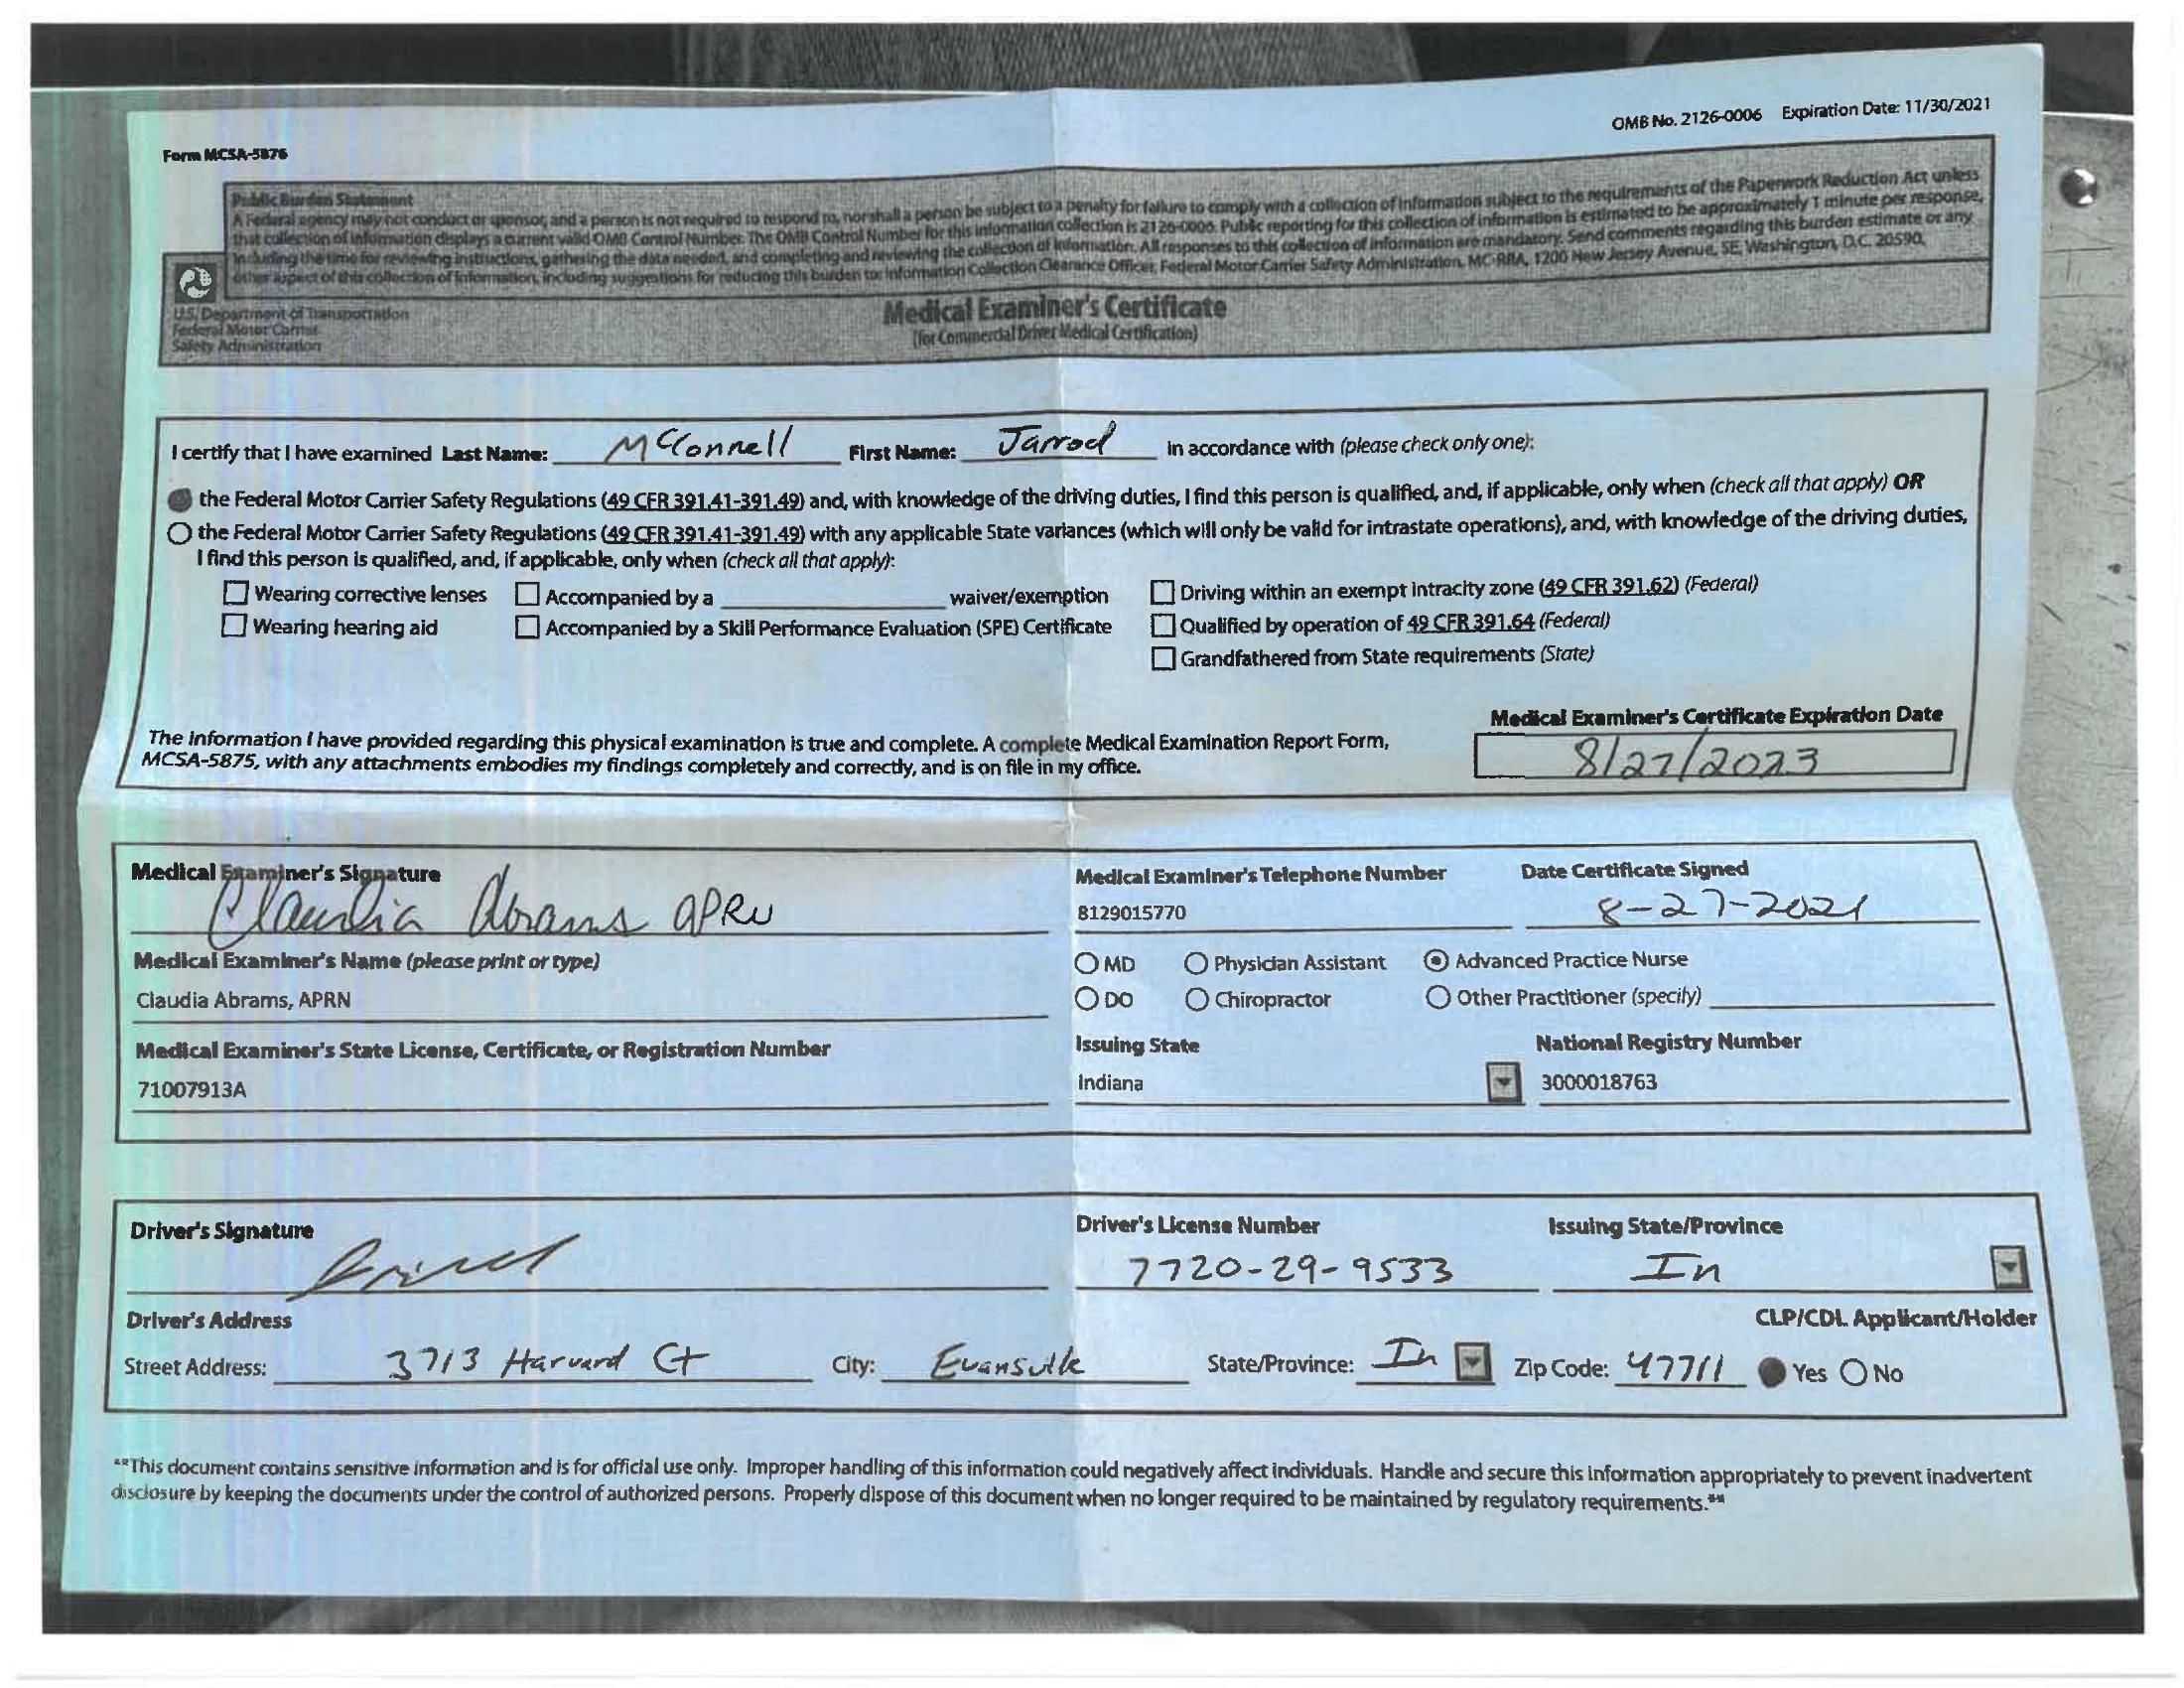 OMB No. 2126-0006 Expiration Date: 11/30/2021
Form MCSA-5876
Public Burden Statement
A Federal agency may not conduct or sponsor, and a person is not required to respond to, nor shall a person be subject to a penalty for failure to comply with a collection of information subject to the requirements of the Paperwork Reduction Act unless
that collection of information displays a current valid OMB Control Number. The OMB Control Number for this information collection is 2126-0006. Public reporting for this collection of information is estimated to be approximately 1 minute per response,
including the time for reviewing instructions, gathering the data needed, and completing and reviewing the collection of information. All responses to this collection of information are mandatory. Send comments regarding this burden estimate or any
other aspect of this collection of information, including suggestions for reducing this burden to: Information Collection Clearance Officer, Federal Motor Carrier Safety Administration, MC-RRA, 1200 New Jersey Avenue, SE, Washington, D.C. 20590.
U.S. Department of Transportation
Federal Motor Carrier
Safety Administration
Medical Examiner's Certificate
(for Commercial Driver Medical Certification)
I certify that I have examined Last Name: McConnell First Name: Jarrod in accordance with (please check only one):
the Federal Motor Carrier Safety Regulations (49 CFR 391.41-391.49) and, with knowledge of the driving duties, I find this person is qualified, and, if applicable, only when (check all that apply) OR
the Federal Motor Carrier Safety Regulations (49 CFR 391.41-391.49) with any applicable State variances (which will only be valid for intrastate operations), and, with knowledge of the driving duties,
I find this person is qualified, and, if applicable, only when (check all that apply):
Wearing corrective lenses Accompanied by a waiver/exemption Driving within an exempt intracity zone (49 CFR 391.62) (Federal)
Wearing hearing aid Accompanied by a Skill Performance Evaluation (SPE) Certificate Qualified by operation of 49 CFR 391.64 (Federal)
Grandfathered from State requirements (State)
Medical Examiner's Certificate Expiration Date
The information I have provided regarding this physical examination is true and complete. A complete Medical Examination Report Form,
MCSA-5875, with any attachments embodies my findings completely and correctly, and is on file in my office.
8/27/2023
Medical Examiner's Signature Medical Examiner's Telephone Number Date Certificate Signed
Claudia Abrams APRN 8129015770 8-27-2021
Medical Examiner's Name (please print or type) MD Physician Assistant Advanced Practice Nurse
Claudia Abrams, APRN DO Chiropractor Other Practitioner (specify)
Medical Examiner's State License, Certificate, or Registration Number Issuing State National Registry Number
71007913A Indiana 3000018763
Driver's Signature Driver's License Number Issuing State/Province
7720-29-9533 In
Driver's Address CLP/CDL Applicant/Holder
Street Address: 3713 Harvard Ct City: Evansville State/Province: In Zip Code: 47711 Yes No
**This document contains sensitive information and is for official use only. Improper handling of this information could negatively affect individuals. Handle and secure this information appropriately to prevent inadvertent
disclosure by keeping the documents under the control of authorized persons. Properly dispose of this document when no longer required to be maintained by regulatory requirements.**